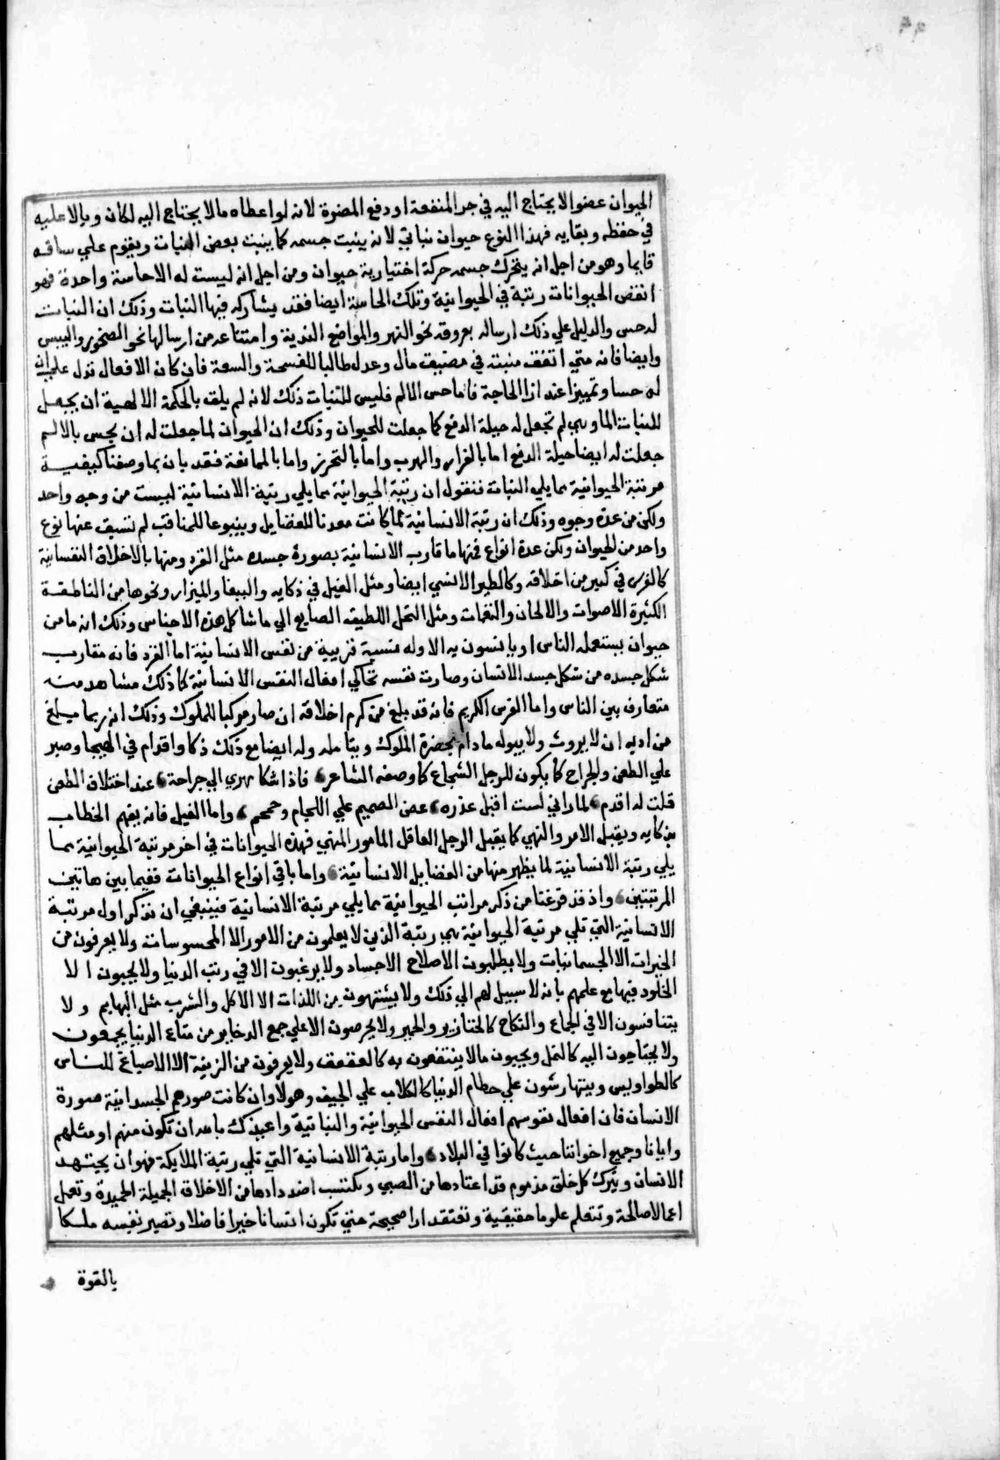 الحيوان عضوا لا يحتاج اليه في جر المنفعة او دفع المضرة لانه لو اعطاه ما لا يحتاج اليه لكان وبالا عليه
في حفظه وبقايه فهذا النوع حيوان نباتي لانه ينبت جسمه كما ينبت بعض النبات ويقوم علي ساقه
قايما وهو من اجل انه يتحرك جسمه حركة اختيارية حيوان ومن اجل انه ليست له الا حاسة واحدة فهو
انقص الحيوانات رتبة في الحيوانية وتلك الحاسة ايضا فقد يشاركه فيها النبات وذلك ان النبات
له حس والدليل علي ذلك ارساله بعروقه نحو النهر والمواضع الندية وامتناعه من ارسالها نحو الصخور واليبس
وايضا فانه متي اتفق منبته في مضيق مال وعدل طالبا للفسحة والسعة فان كان الافعال تدل علي ان
له حسا وتمييزا عند اذا الحاجة فاما حس الالم فليس للنبات ذلك لانه لم يلق بالحكمة الالهية ان يجعل
للنبات الما وهي لم تجعل له حيلة الدفع كما جعلت للحيوان وذلك ان الحيوان لما جعلت له ان يحس بالالم
جعلت له ايضا حيلة الدفع اما بالفرار والهرب واما بالتحرز واما بالممانعة فقد بان بما وصفنا كيفية
مرتبة الحيوانية مما يلي النبات فنقول ان رتبة الحيوانية مما يلي رتبة الانسانية ليست من وجه واحد
ولكن من عدة وجوه وذلك ان رتبة الانسانية لما كانت معدنا للفضايل وينبوعا للمناقب لم تسبق عنها نوع
واحد من الحيوان ولكن عدة انواع فمنها ما قارب الانسانية بصورة جسده مثل القرد ومنها بالاخلاق النفسانية
كالفرس في كبير من اخلاقه وكالطير الانسي ايضا ومثل الفيل في ذكايه والببغا والهزار ونحوها من الناطقة
الكثيرة الاصوات والالحان والنغمات ومثل النحل اللطيفه الصنايع الي ما شاكل هذه الاجناس وذلك انه ما من
حيوان يستعمله الناس او يانسون به الا وله نسبة قريبة من نفس الانسانية اما القرد فانه مقارب
شكل جسده من شكل جسد الانسان وصارت نفسه تحاكي افعال النفس الانسانية كما ذلك مشاهد منه
متعارف بين الناس واما الفرس الكريم فانه قد بلغ من كرم اخلاقه ان صار مركبا للملوك وذلك انه ربما يبلغ
من ادبه ان لا يروث ولا يبوله ما دام بحضرة الملوك وبتامله وله ايضا مع ذلك ذكا واقدام في الهيجا وصبر
علي الطعن والجراح كما يكون للرجل الشجاع كما وصفه الشاعر فاذا شكا مهري الي جراحة عند اختلاف الطعن
قلت له اقدم لما راني لست اقبل عذره عض الصميم علي اللجام وحمحم واما الفيل فانه يفهم الخطاب
بذكايه ويقبل الامر والنهي كما يقبل الرجل العاقل المامور المنهي فهذه الحيوانات في اخر مرتبة الحيوانية مما
يلي رتبة الانسانية لما يظهر منها من الفضايل الانسانية واما باقي انواع الحيوانات ففيما بين هاتين
المرتبتين واذ قد فرغنا من ذكر مراتب الحيوانية مما يلي مرتبة الانسانية فينبغي ان نذكر اول مرتبة
الانسانية التي تلي مرتبة الحيوانية هي رتبة الذين لا يعلمون من الامور الا المحسوسات ولا يعرفون من
الخيرات الا الجسمانيات ولا يطلبون الاصلاح الاجساد ولا يرغبون الا في رتب الدنيا ولا يحبون الا
الخلود فيها مع علمهم بانه لا سبيل لهم الي ذلك ولا يشتهون من اللذات الا الاكل والشرب مثل البهايم ولا
يتنافسون الا في الجماع والنكاح كالخنازير والحمير ولا يحرصون الا علي جمع الدخاير من متاع الدنيا يجمعون
ولا يحتاجون اليه كالنمل ويحبون ما لا ينتفعون به كالعقعق ولا يعرفون من الزينة الا الاصباغ للناس
كالطواويس ويتهارشون علي حطام الدنيا كالكلاب علي الجيف وهولا وان كانت صورهم الجسدانية صورة
الانسان فان افعال نفوسهم افعال النفس الحيوانية والنباتية واعيذك بالله ان تكون منهم او مثلهم
وايانا وجميع اخواننا حيث كانوا في البلاد واما رتبة الانسانية التي تلي رتبة الملايكة فهو ان يجتهد
الانسان ويترك كل خلق مذموم قد اعتاده من الصبي ويكتسب اضدادها من الاخلاق الجميلة الحميدة وتعمل
اعمالا صالحة وتتعلم علوما حقيقية وتعتقد ارا صحيحة حتي تكون انسانا خيرا فاضلا وتصير نفسه ملكا
بالقوة